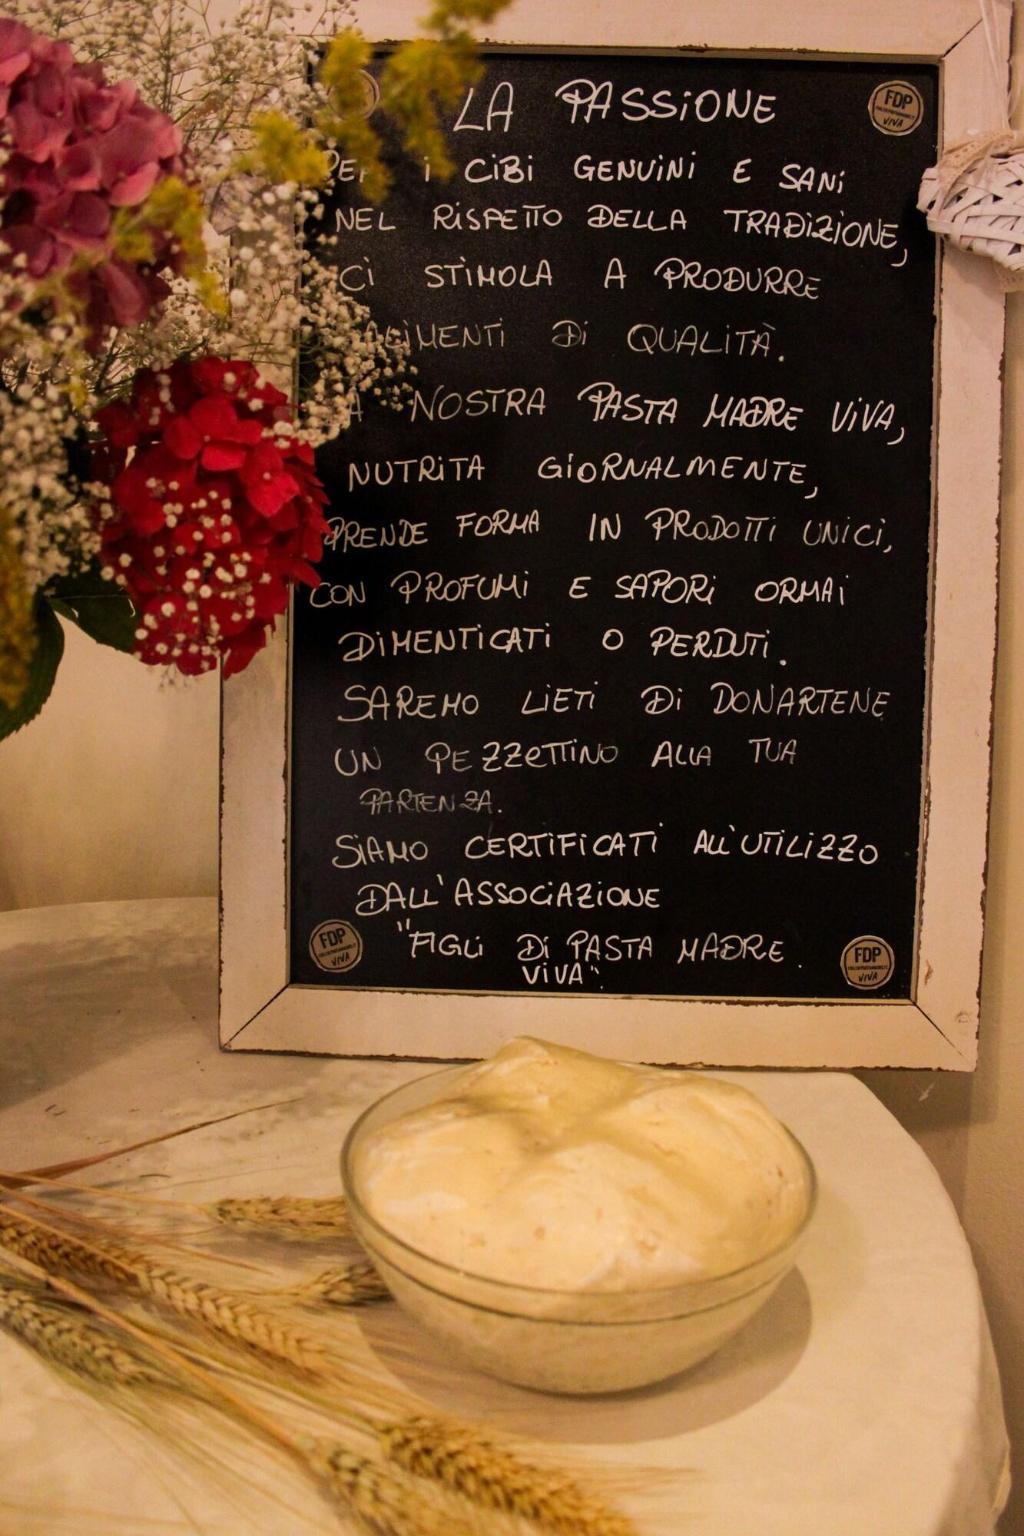 LA PASSIONE
PER I CIBI GENUINI E SANI
NEL RISPETTO DELLA TRADIZIONE,
CI STIMOLA A PRODURRE
DI QUALITÀ.
NOSTRA PASTA MADRE VIVA,
NUTRITA GIORNALMENTE,
PRENDE FORMA IN PRODOTTI UNICI,
CON PROFUMI E SAPORI ORMAI
DIMENTICATI O PERDUTI.
SAREMO LIETI DI DONARTENE
UN PEZZETTINO ALLA TUA
PARTENZA.
SIAMO CERTIFICATI ALL'UTILIZZO
DALL'ASSOCIAZIONE
"FIGLI DI PASTA MADRE
VIVA".
FDP
VIVA
FDP
VIVA
FDP
VIVA